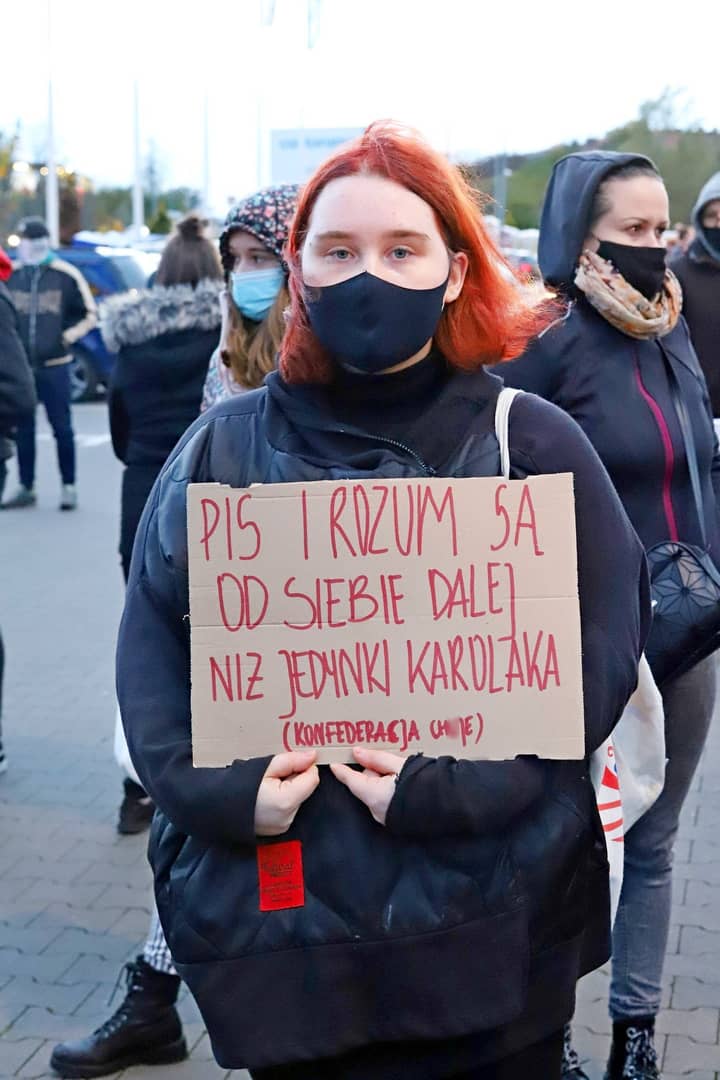 PIS I ROZUM SĄ
OD SIEBIE DALEJ
NIŻ JEDYNKI KAROLAKA
(KONFEDERACJA CH*JE)